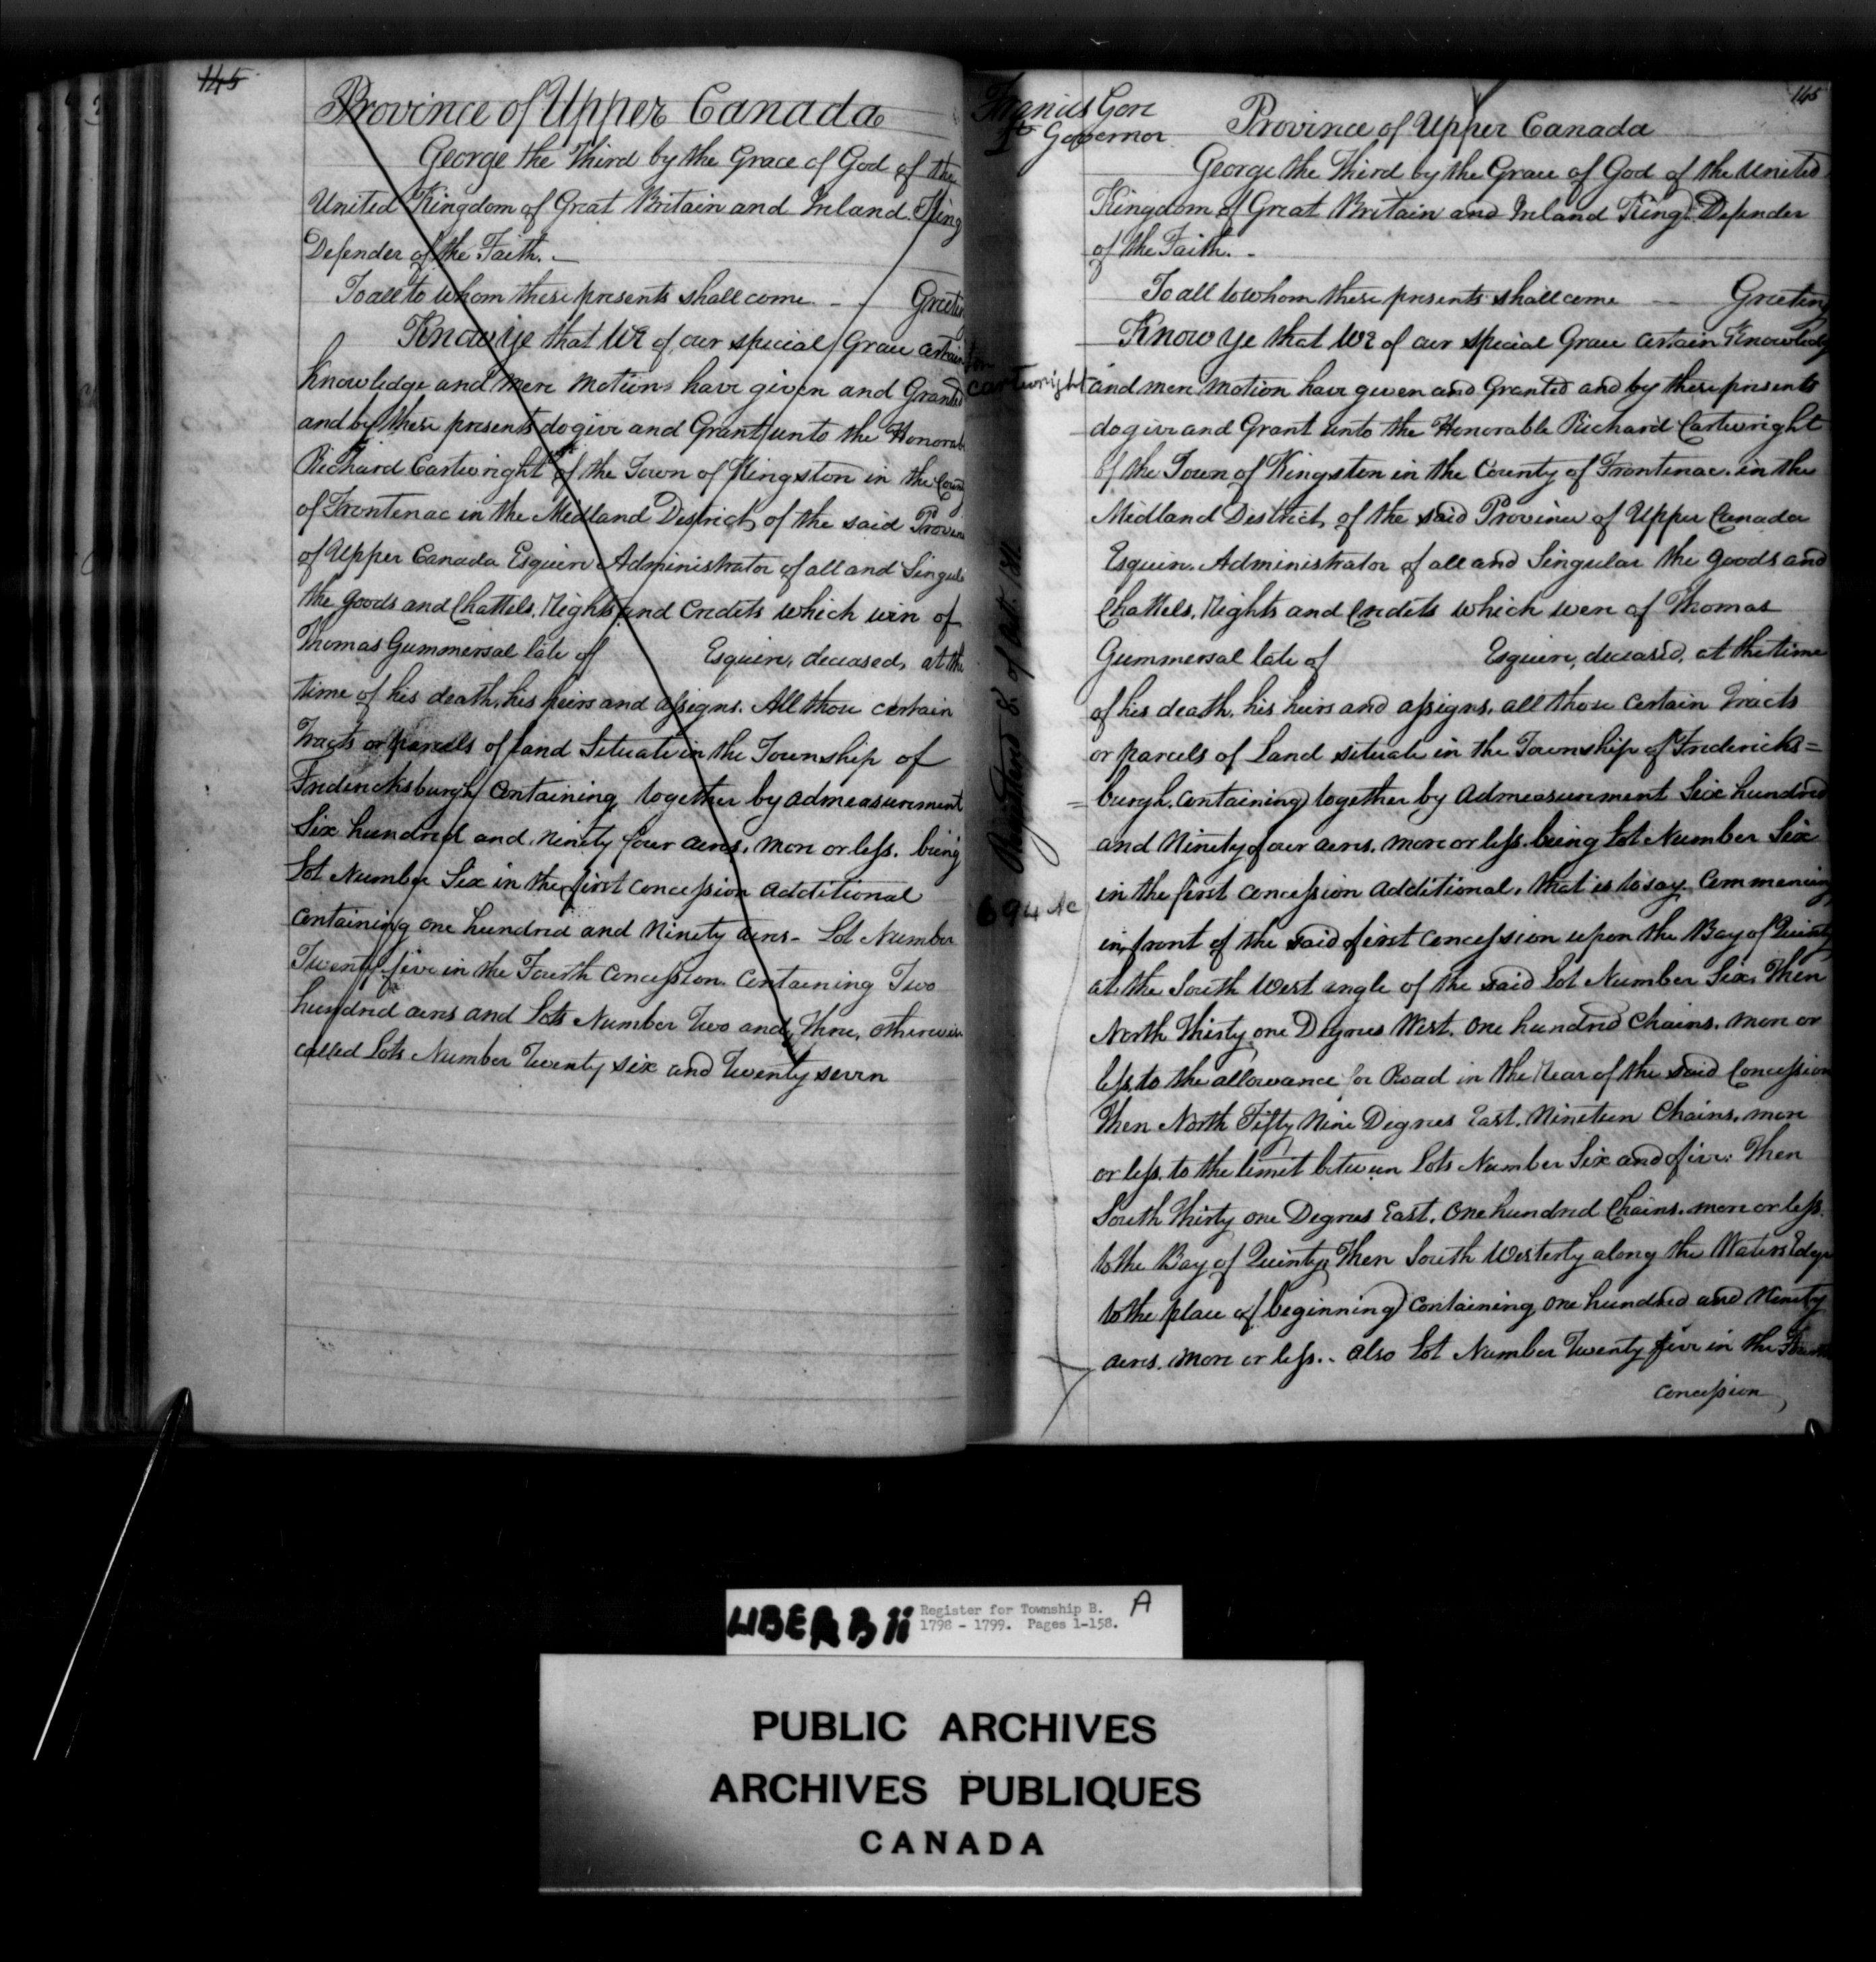 145
Province of Upper Canada
George the Third by the Grace of God of the
United Kingdom of Great Britain and Ireland King
Defender of the Faith. —
To all to whom these presents shall come - - Greeting
Know ye that We of our special Grace certain
knowledge and mere motions have given and Granted
and by these presents do give and Grant unto the Honorab
Richard Cartwright of the Town of Kingston in the Coun
of Frontenac in the Midland District of the said Provin
of Upper Canada Esquire Administrator of all and Singul
the goods and Chattels, Rights and Credits which were of
Thomas Gummersal late of Esquire, deceased, at the
time of his death, his heirs and assigns. All those certain
Tracts or parcels of land Situate in the Township of
Fredericksburgh Containing together by admeasurement
Six hundred and ninety four acres, more or less. being
Lot Number Six in the first Concession additional
containing one hundred and Ninety acres - Lot Number
Twenty five in the Fourth Concession Containing Two
hundred acres and Lots Number Two and Three, otherwise
called Lots Number Twenty six and Twenty seven
145
Francis Gore
Lt Governor
Province of Upper Canada
George the Third by the Grace of God of the United
Kingdom of Great Britain and Ireland King Defender
of the Faith. -
To all to whom these presents shall come — Greeting
Know ye that We of our special Grace certain Knowledg
Cartwright
and mere motion have given and Granted and by these presents
do give and Grant unto the Honorable Richard Cartwright
of the Town of Kingston in the County of Frontenac in the
Midland District, of the said Province of Upper Canada
Esquire. Administrator of all and Singular the goods and
Chattels, Rights and Credits which were of Thomas
Gummersal late of Esquire, deceased, at the time
of his death, his heirs and assigns, all those certain Tracts
or parcels of Land situate in the Township of Fredericks=
=burgh. Containing together by Admeasurement Six hundred
and Ninety four acres. more or less. being Lot Number Six
694 Ac
in the first Concession additional, that is to say, Commencing
in front of the said first Concession upon the Bay of Quinty
at the South West angle of the said Lot Number Six, Then
North Thirty one Degrees West. One hundred Chains. more or
less to the allowance for Road in the Rear of the said Concession
Then North Fifty Nine Degrees East. Nineteen Chains, more
or less. to the limit between Lots Number Six and five: Then
South Thirty one Degrees East. One hundred Chains. more or less.
to the Bay of Quinty, Then South Westerly along the Waters Edge
to the place of beginning Containing one hundred and Ninety
acres, more or less. - also Lot Number Twenty five in the Fourth
Concession
LIBER B ii
Register for Township B.
1798 - 1799. Pages 1-158.
A
PUBLIC ARCHIVES
ARCHIVES PUBLIQUES
CANADA